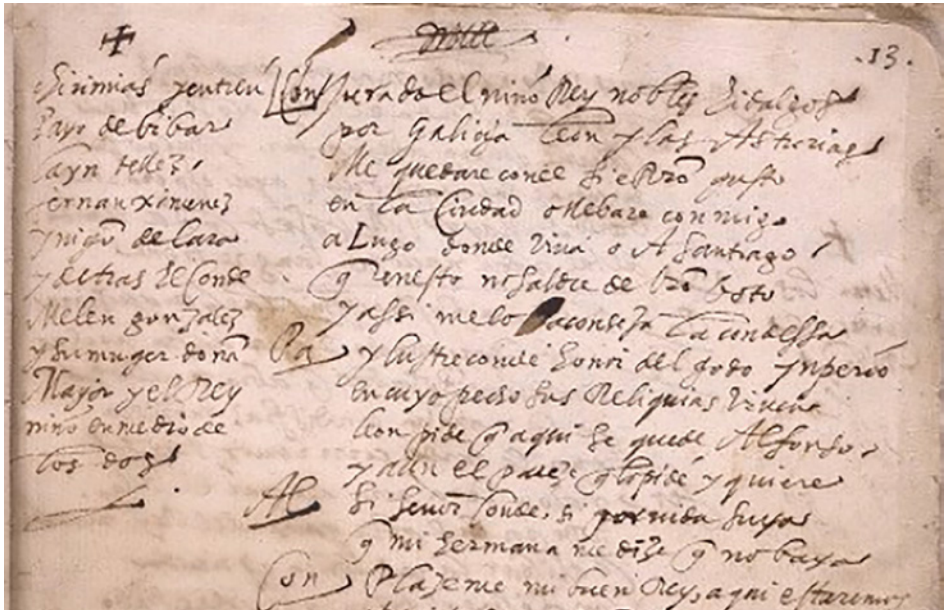 13.
Chirimias y entren
Payo de bibar
layn tellez
fernan ximenez
ynigo de lara
y detras El Conde
Melen gonzalez
y su muger doña
Mayor y el Rey
niño en medio de
los dos
Con Jurado el niño Rey nobles hidalgos
por Galicia leon y las Asturias
Me quedare con el si es Vro gusto
en la Ciudad o llebare conmigo
a Lugo donde viua o A Santiago
q en esto no saldre de Vro Voto
y assi me lo aconseja la condessa
Pa ylustre conde honrra del godo ynperio
en cuyo pecho sus Reliquias viuen
leon pide q aqui se quede Alfonso
y aun el pareze q lo pide y quiere
Al Si señor Conde, si por vida suya
q mi hermana me dize q no baya
Con Plazeme mi buen Rey, aqui estaremos